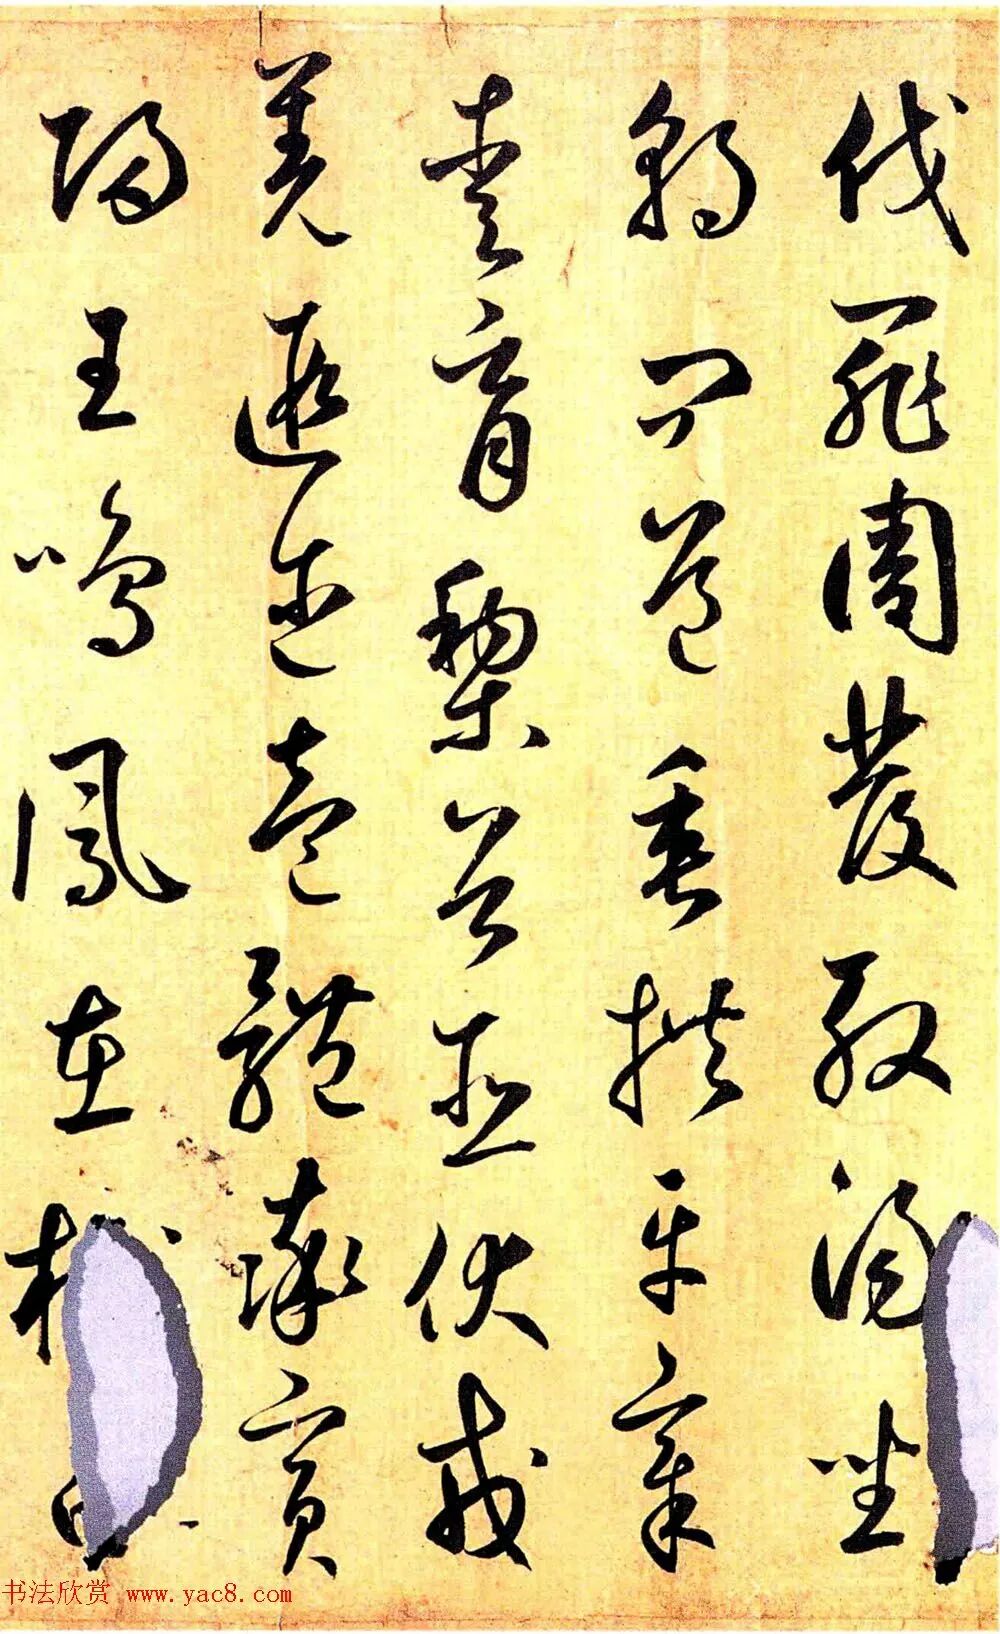 伐罪周發殷湯坐
朝問道垂拱平章
愛育黎首臣伏戎
羌遐邇壹體率賓
歸王鳴鳳在樹白
书法欣赏 www.yac8.com